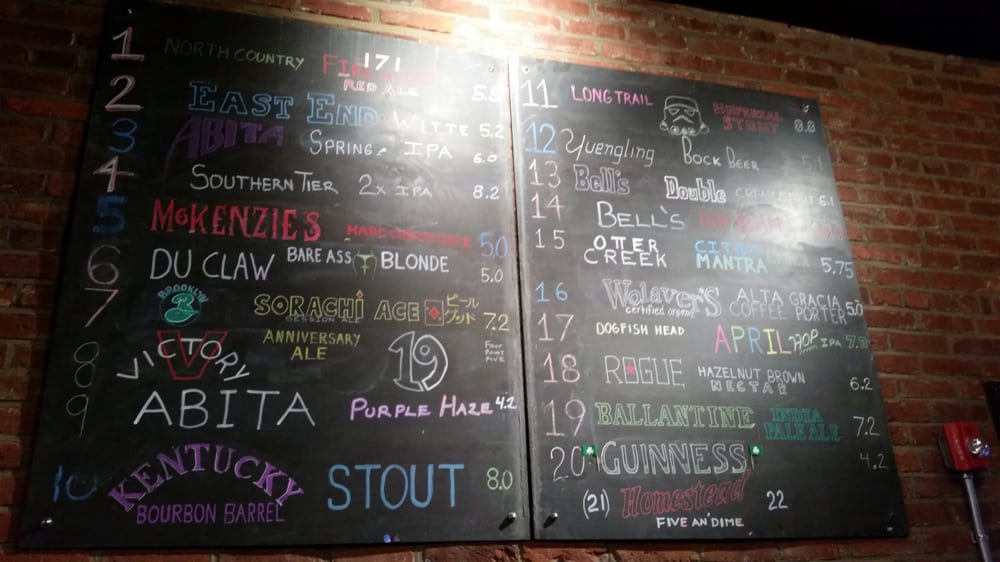 1 NORTH COUNTRY 171 RED ALE 5.5
2 EAST END WITTE 5.2
3 ABITA SPRING IPA 6.0
4 SOUTHERN TIER 2X IPA 8.2
5 McKENZIE'S HARD 5.0
6 DU CLAW BARE ASS BLONDE 5.0
7 BROOKLYN B SORACHI ACE ビールグッド 7.2
SESSION ALE
8 VICTORY V ANNIVERSARY ALE 19 FOUR POINT FIVE
9 ABITA PURPLE HAZE 4.2
10 KENTUCKY BOURBON BARREL STOUT 8.0
11 LONG TRAIL IMPERIAL STOUT 8.0
12 Yuengling BOCK BEER 5.1
13 Bell's Double CREAM STOUT 6.1
14 BELL'S
15 OTTER CREEK CITRA MANTRA 5.75
16 WOLAVER'S certified organic ALTA GRACIA COFFEE PORTER 5.0
17 DOGFISH HEAD APRIL HOP IPA
18 ROGUE HAZELNUT BROWN NECTAR 6.2
19 BALLANTINE INDIA PALE ALE 7.2
20 GUINNESS 4.2
(21) Homestead 22
FIVE AN' DIME